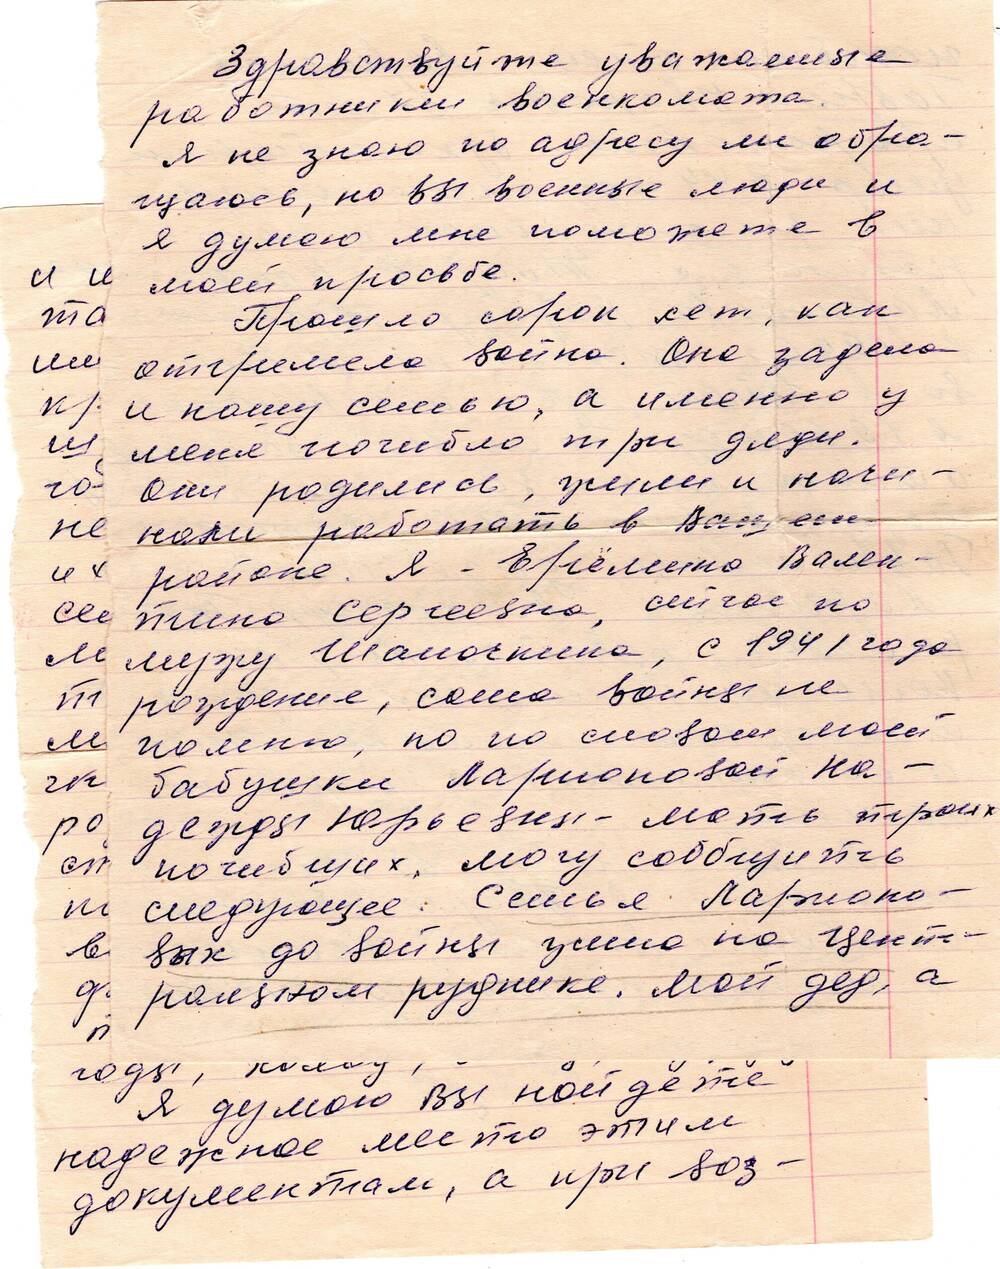 Здравствуйте уважаемые
работники военкомата.
Я не знаю по адресу ли обра-
щаюсь, но Вы военные люди и
я думаю мне поможете в
моей просьбе.
Прошло сорок лет, как
отгремела война. Она задела
и нашу семью, а именно у
меня погибло три дяди.
Они родились, жили и начи-
нали работать в Вашем
районе. Я - Ерёмина Вален-
тина Сергеевна, сейчас по
мужу Шапочкина, с 1941 года
рождение, сама войны не
помню, но по словам моей
бабушки Ларионовой На-
дежды Юрьевны - мать троих
погибших, могу сообщить
следующее. Семья Ларионо-
вых до войны жила на Цент-
ральном руднике. Мой дед, а
и и
та
кр
щ
го-
не
их
се
м
т
м
чн
ро
ст
в
ф
п
годы,
Я думаю Вы найдёте
надежное место этим
документам, а при воз-